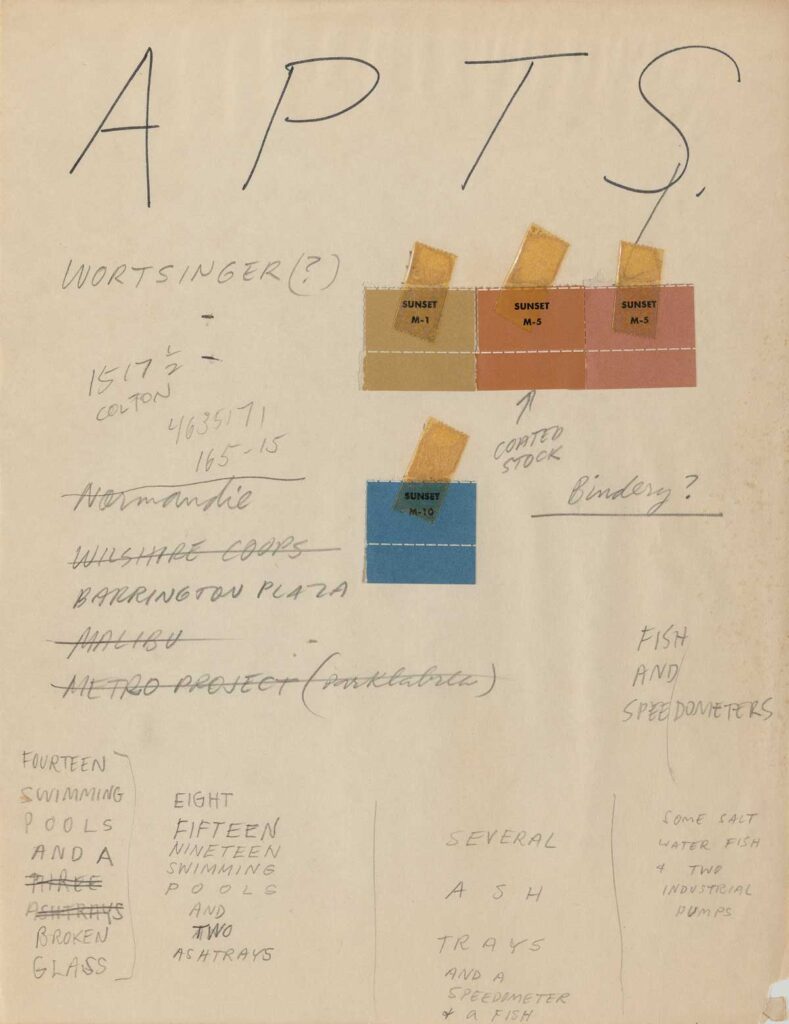 APTS.
WORTSINGER (?)
-
-
1517 1/2
COLTON
4635171
165-15
Normandie
WILSHIRE COOPS
BARRINGTON PLAZA
MALIBU
METRO PROJECT (parklabrea)
SUNSET
M-1
SUNSET
M-5
SUNSET
M-5
COATED
STOCK
SUNSET
M-10
Bindery?
FISH
AND
SPEEDOMETERS
FOURTEEN
SWIMMING
POOLS
AND A
THREE
ASHTRAYS
BROKEN
GLASS
EIGHT
FIFTEEN
NINETEEN
SWIMMING
POOLS
AND
TWO
ASHTRAYS
SEVERAL
ASH
TRAYS
AND A
SPEEDOMETER
& A FISH
SOME SALT
WATER FISH
& TWO
INDUSTRIAL
PUMPS